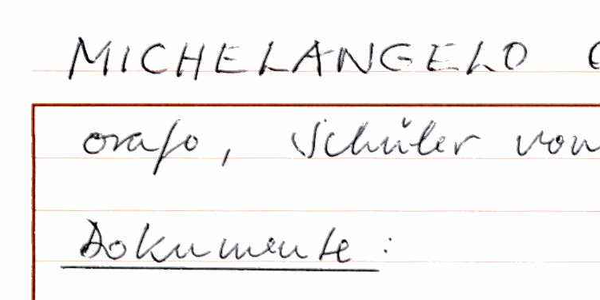 MICHELANGELO
orafo, Schüler von
Dokumente: